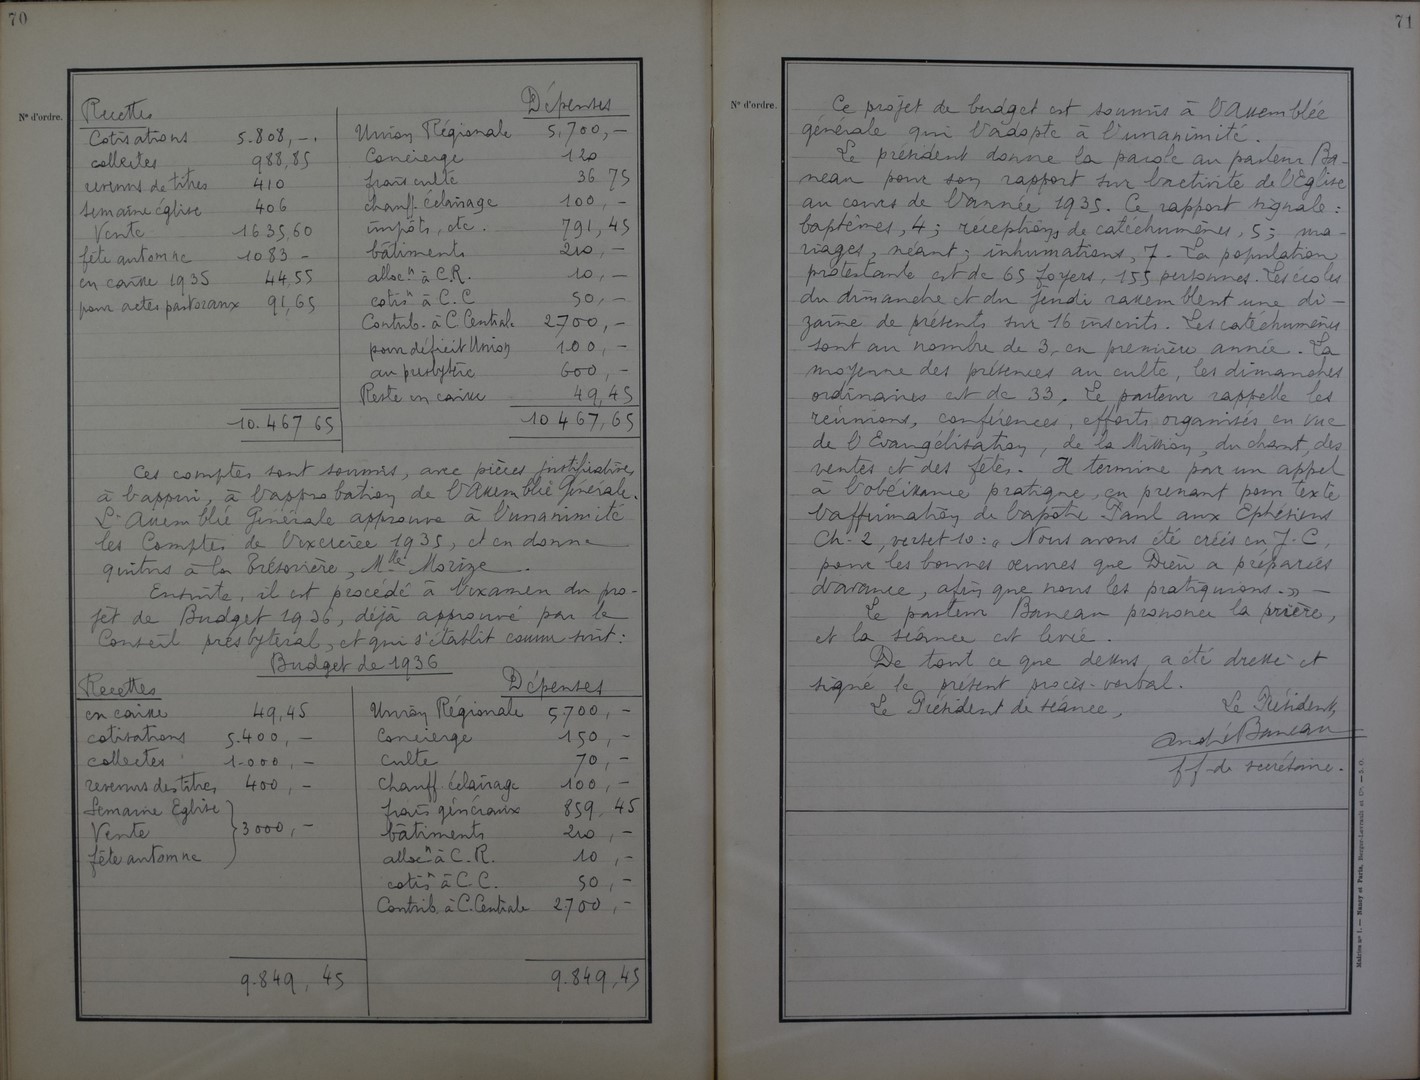 70
Nº d'ordre.
Recettes
Cotisations 5.808,-.
collectes 988,85
revenus de titres 410
semaine église 406
Vente 1635,60
fête automne 1083 -
en caisse 1935 44,55
pour actes pastoraux 91,65
10.467 65
Dépenses
Union Régionale 5.700,-
Concierge 120
frais culte 36 75
chauff. éclairage 100,-
impôts, etc. 791,45
bâtiments 210,-
alloc.n à C.R. 10,-
cotisn à C.C 50,-
Contrib. à C. Centrale 2700,-
pour déficit Union 100,-
au presbytère 600,-
Reste en caisse 49,45
10 467,65
Ces comptes sont soumis, avec pièces justificatives
à l'appui, à l'approbation de l'Assemblée Générale.
L'Assemblée Générale approuve à l'unanimité
les Comptes de l'exercice 1935, et en donne
quitus à la Trésorière, Mlle Morize.
Ensuite, il est procédé à l'examen du pro-
jet de Budget 1936, déjà approuvé par le
Conseil presbytéral, et qui s'établit comme suit:
Budget de 1936
Recettes
en caisse 49,45
cotisations 5.400,-
collectes 1.000,-
revenus des titres 400,-
Semaine Eglise
Vente 3000,-
fête automne
9.849,45
Dépenses
Union Régionale 5.700,-
Concierge 150,-
Culte 70,-
Chauff. éclairage 100,-
frais généraux 859,45
bâtiments 210,-
allocn à C.R. 10,-
cotisn à C.C. 50,-
Contrib. à C. Centrale 2700,-
9.849,45
71
Nº d'ordre.
Ce projet de budget est soumis à l'Assemblée
générale qui l'adopte à l'unanimité.
Le président donne la parole au pasteur Ba-
neau pour son rapport sur l'activité de l'Eglise
au cours de l'année 1935. Ce rapport signale:
baptêmes, 4; réceptions de catéchumènes, 5; ma-
riages, néant; inhumations, 7. La population
protestante est de 65 foyers, 155 personnes. Les écoles
du dimanche et du jeudi rassemblent une di-
zaine de présents sur 16 inscrits. Les catéchumènes
sont au nombre de 3, en première année. La
moyenne des présences au culte, les dimanches
ordinaires est de 33. Le pasteur rappelle les
réunions, conférences, efforts organisés en vue
de l'Evangélisation, de la Mission, du chant, des
ventes et des fêtes. Il termine par un appel
à l'obéissance pratique, en prenant pour texte
l'affirmation de l'apôtre Paul aux Ephésiens
Ch. 2, verset 10: « Nous avons été créés en J-C,
pour les bonnes œuvres que Dieu a préparées
d'avance, afin que nous les pratiquions. » -
Le pasteur Baneau prononce la prière,
et la séance est levée.
De tout ce que dessus, a été dressé et
signé le présent procès-verbal.
Le Président de séance, Le Président,
André Baneau
f f de secrétaire.
Modèle nº 1. — Nancy et Paris, Berger-Levrault et Cie. — J. O.